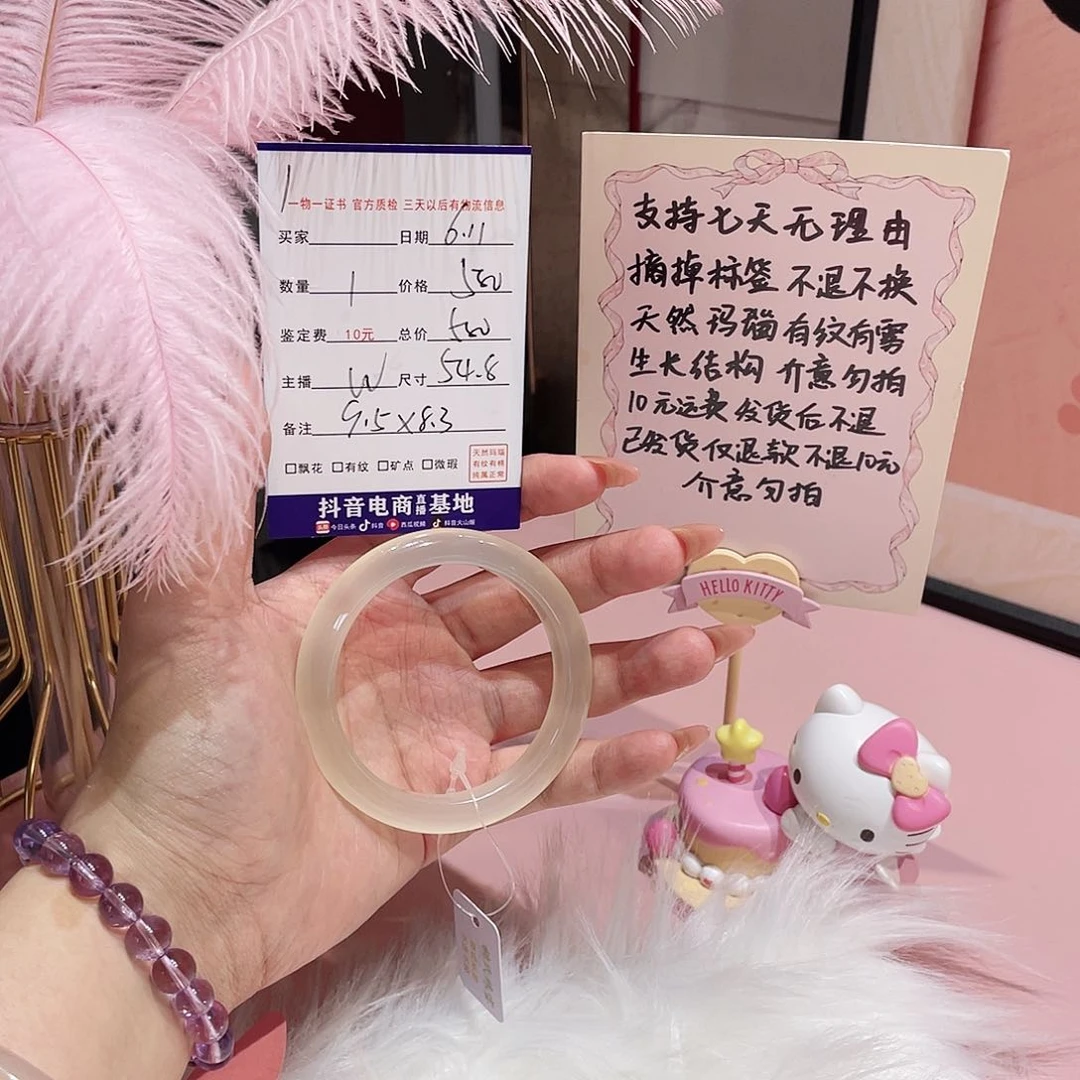 一物一证书 官方质检 三天以后有物流信息
买家 日期 6.11
数量 1 价格 580
鉴定费 10元 总价 580
主播 W 尺寸 54.8
备注 9.5×8.3
□飘花 □有纹 □矿点 □微瑕
天然玛瑙
有纹有棉
纯属正常
抖音电商直播基地
头条 今日头条 抖音 西瓜视频 抖音火山版
支持七天无理由
摘掉标签 不退不换
天然玛瑙有纹有雾
生长结构 介意勿拍
10元运费发货后不退
已发货仅退款不退10元
介意勿拍
HELLO KITTY